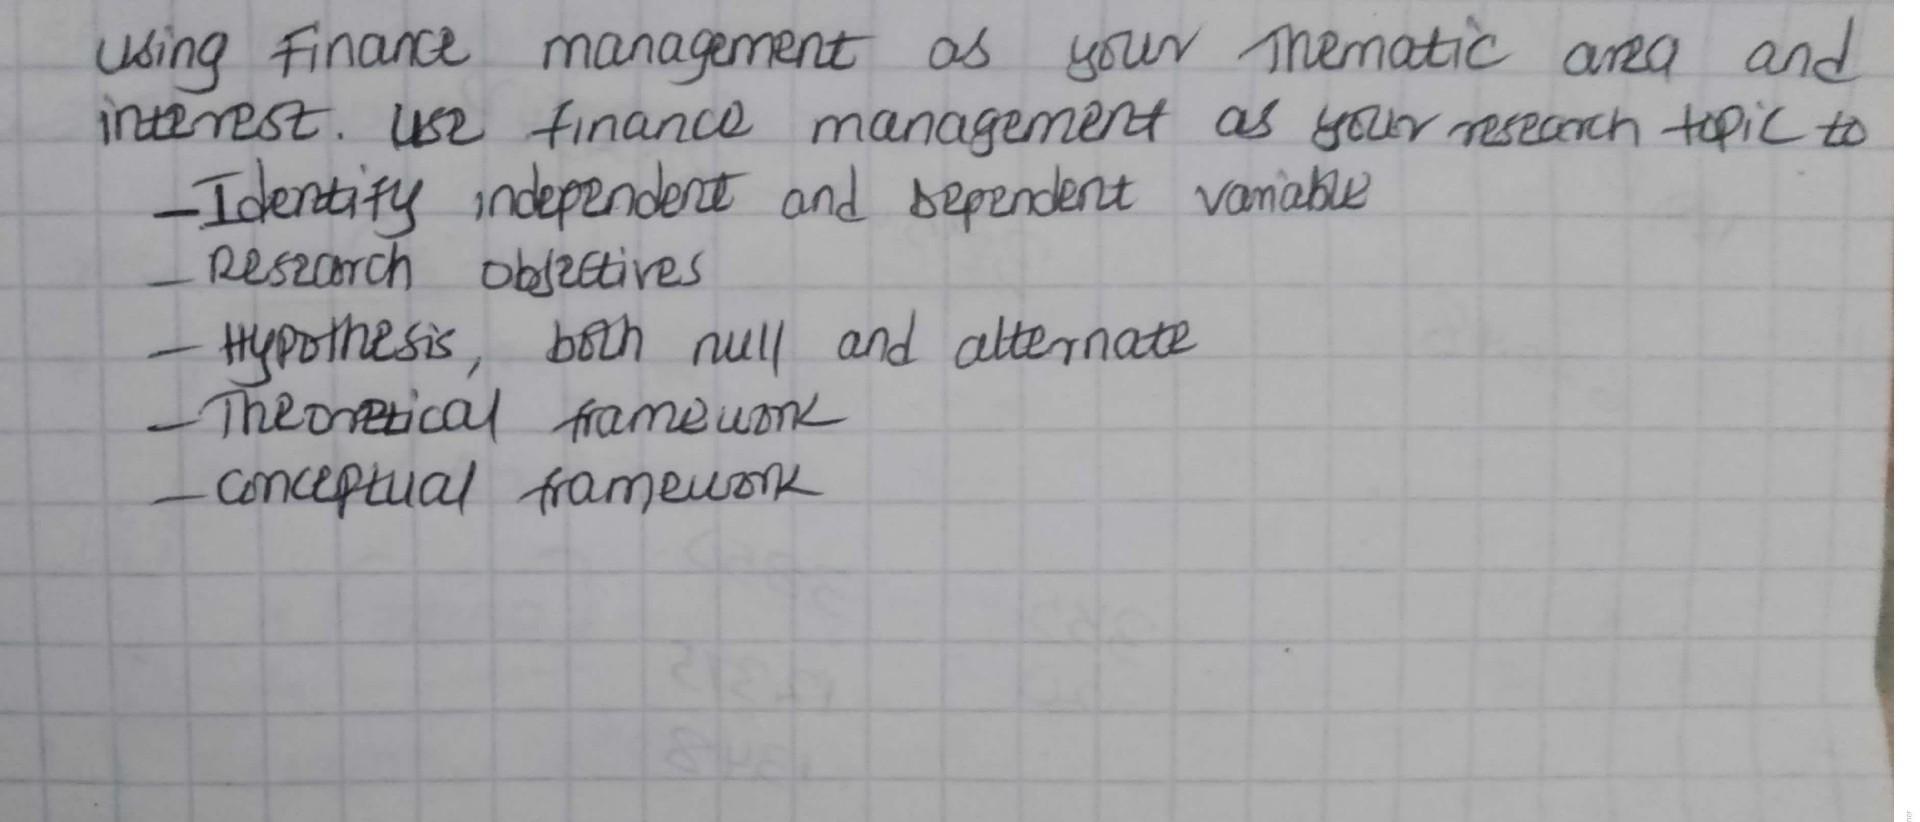 using Finance management as your Thematic area and
interest. use finance management as your research topic to
- Identify independent and Dependent variable
- Research objectives
- Hypothesis, both null and alternate
- Theoretical framework
- conceptual framework